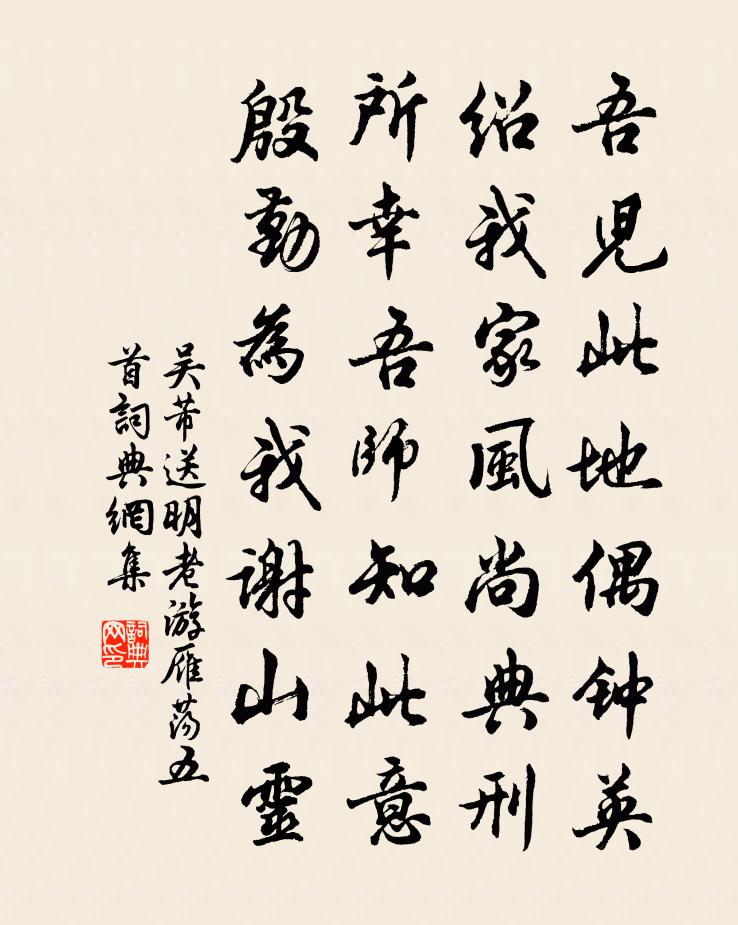 吾児此地偶钟英
绍我家風尚典刑
所幸吾师知此意
殷勤為我谢山靈
吴芾送明老游雁荡五
首詞典網集
詞典
网印